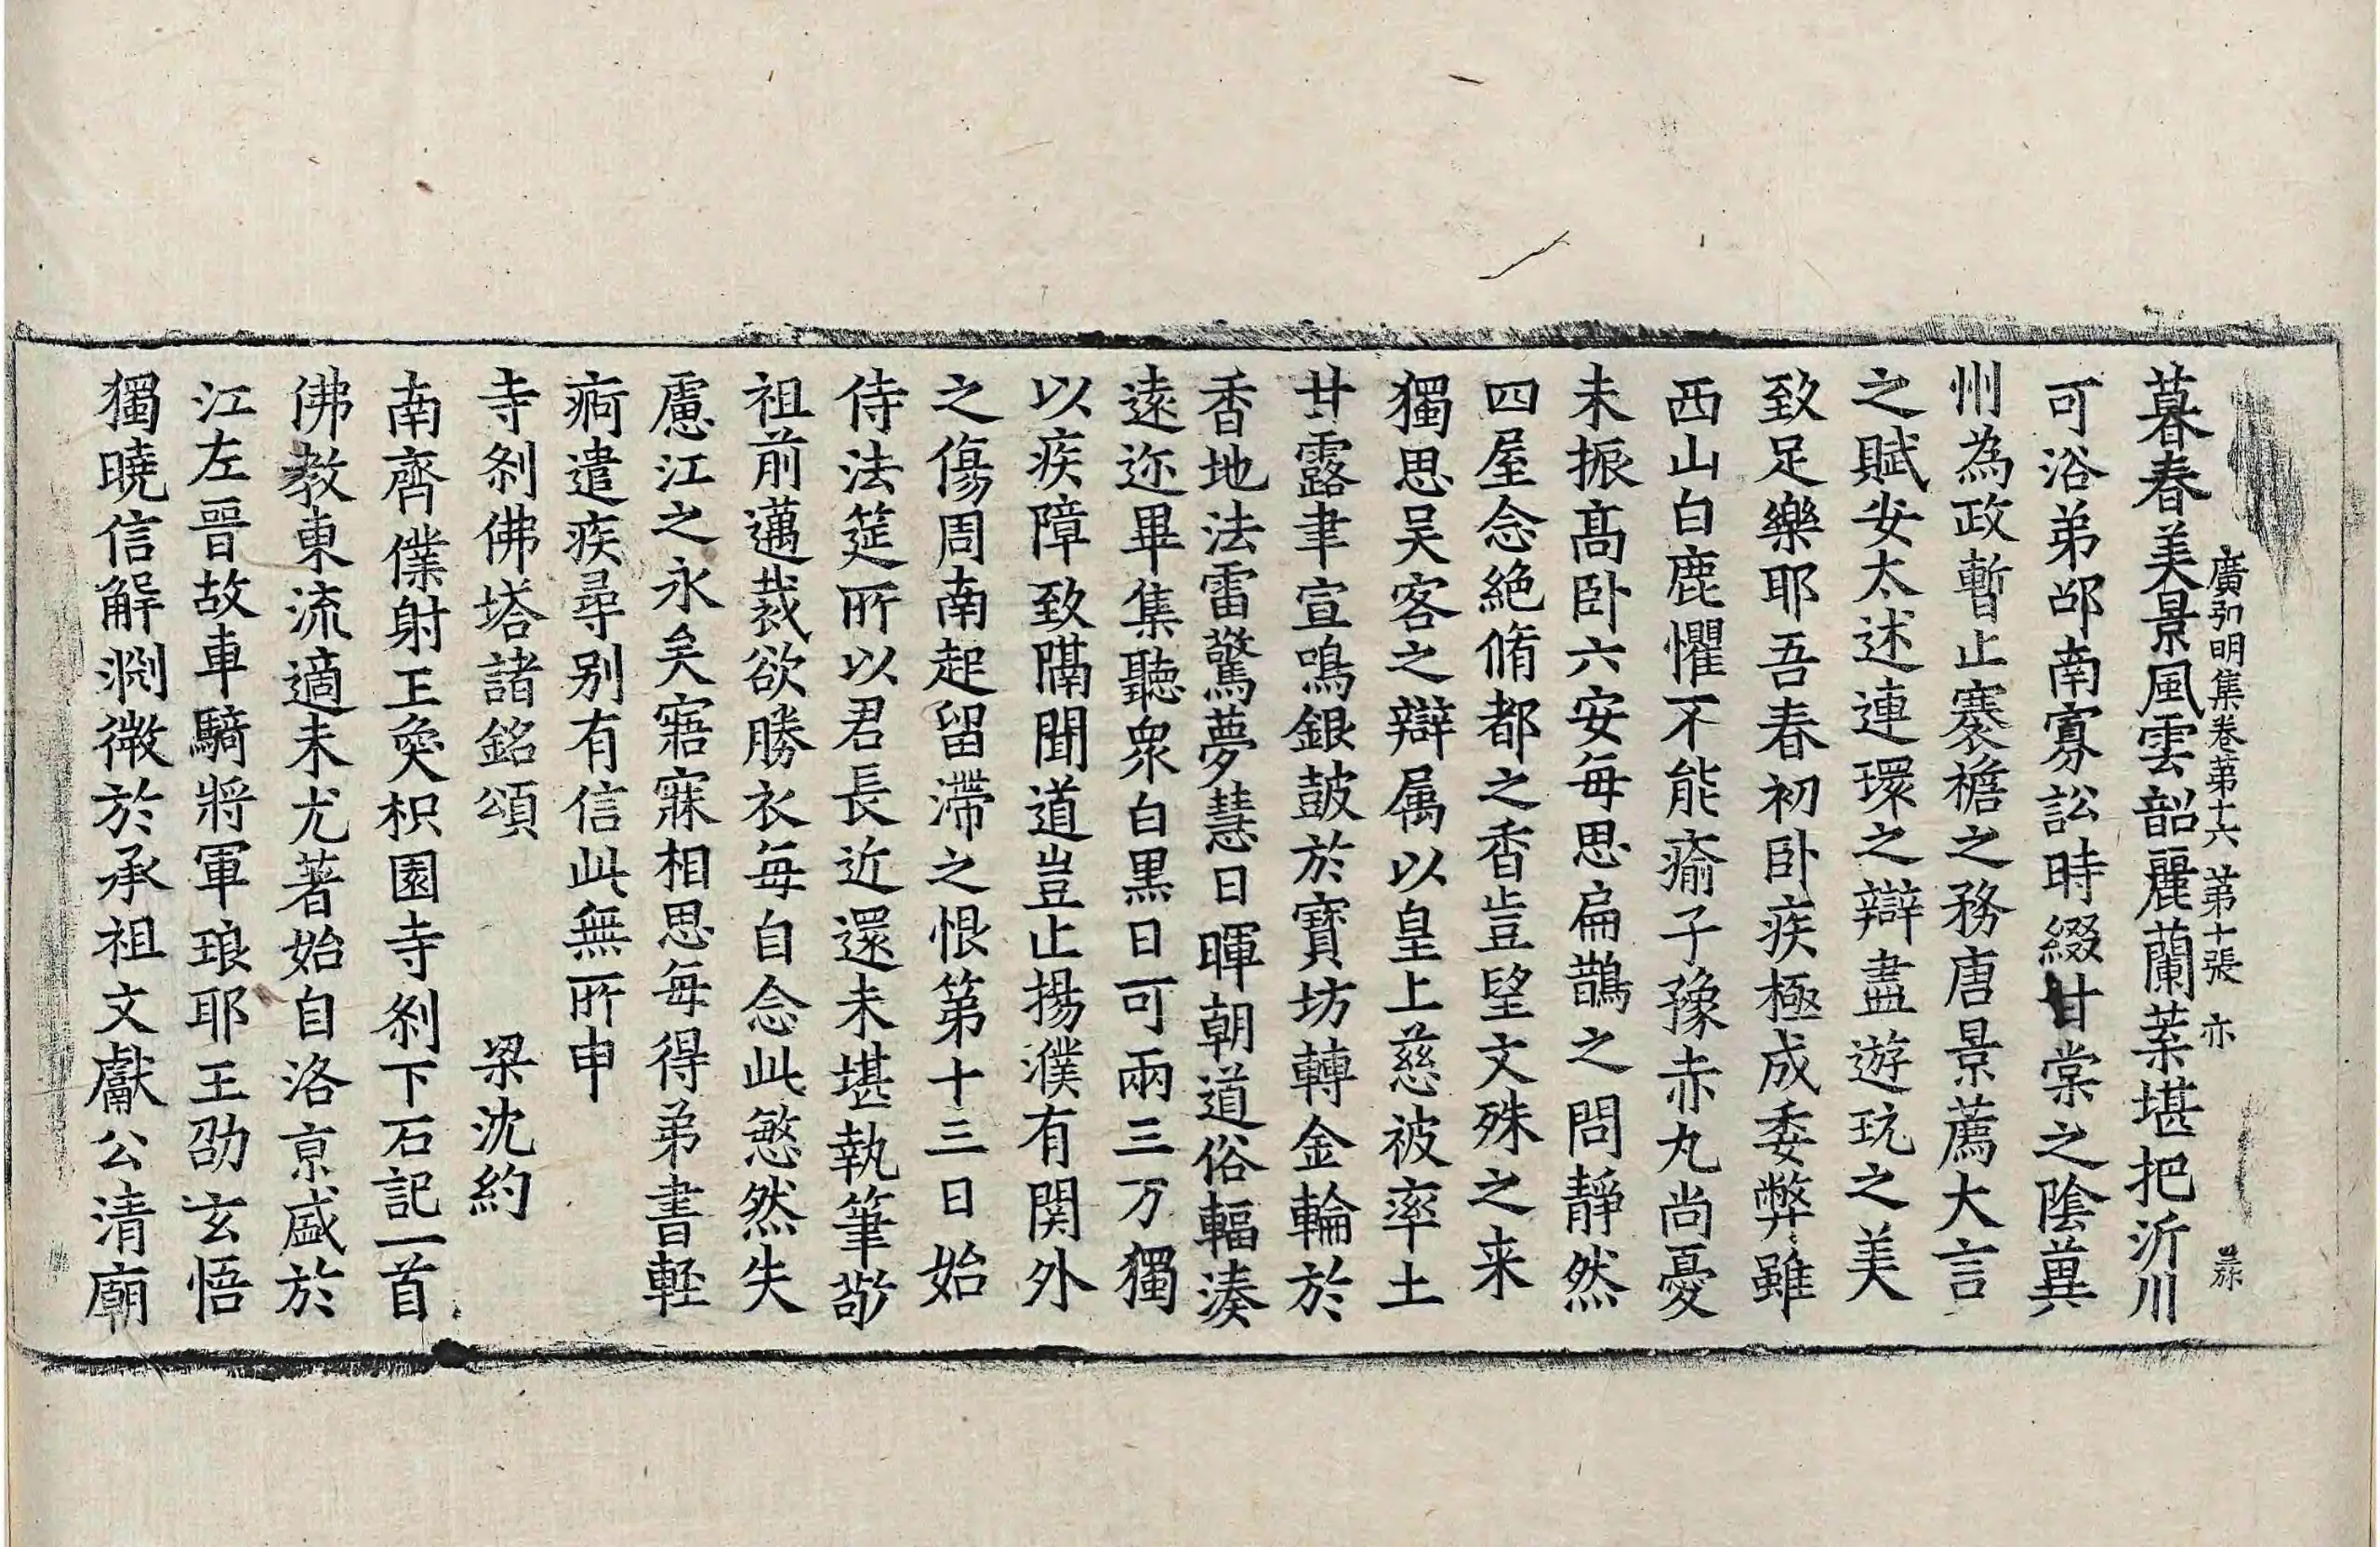 廣弘明集卷第十六 第十張 亦
暮春美景風雲韶麗蘭葉堪把沂川
可浴弟邵南寡訟時綴甘棠之陰冀
州為政暫止褰襜之務唐景薦大言
之賦安太述連環之辯盡遊玩之美
致足樂耶吾春初卧疾極成委弊雖
西山白鹿懼不能瘉子豫赤丸尚憂
未振髙卧六安每思扁鵲之問靜然
四屋念絶脩都之香豈望文殊之来
獨思吴客之辯属以皇上慈被率土
甘露聿宣鳴銀鼓於寶坊轉金輪於
香地法雷驚夢慧日暉朝道俗輻湊
逺迩畢集聽衆白黒日可兩三万獨
以疾障致隔聞道豈止揚濮有関外
之傷周南起留滯之恨第十三日始
侍法筵所以君長近還未堪執筆敬
祖前邁裁欲勝衣每自念此慜然失
慮江之永矣寤寐相思每得弟書輕
痾遣疾尋别有信此無所申
寺刹佛塔諸銘頌 梁沈約
南齊僕射王奐枳園寺刹下石記一首
佛教東流適未尤著始自洛京盛於
江左晉故車騎將軍琅耶王劭玄悟
獨曉信解淵微於承祖文獻公清廟